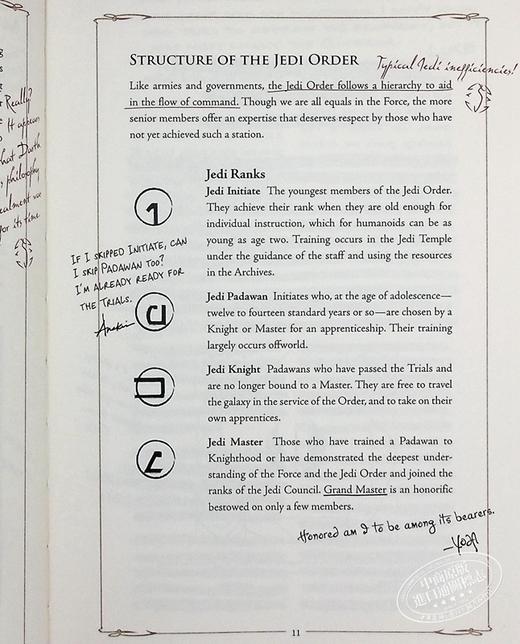 Really?
It appears
that Darth
philosophy
for its time
STRUCTURE OF THE JEDI ORDER
Typical Jedi inefficiencies!
Like armies and governments, the Jedi Order follows a hierarchy to aid
in the flow of command. Though we are all equals in the Force, the more
senior members offer an expertise that deserves respect by those who have
not yet achieved such a station.
Jedi Ranks
Jedi Initiate The youngest members of the Jedi Order.
They achieve their rank when they are old enough for
individual instruction, which for humanoids can be as
young as age two. Training occurs in the Jedi Temple
under the guidance of the staff and using the resources
in the Archives.
IF I SKIPPED INITIATE, CAN
I SKIP PADAWAN TOO?
I'M ALREADY READY FOR
THE TRIALS.
Anakin
Jedi Padawan Initiates who, at the age of adolescence—
twelve to fourteen standard years or so—are chosen by a
Knight or Master for an apprenticeship. Their training
largely occurs offworld.
Jedi Knight Padawans who have passed the Trials and
are no longer bound to a Master. They are free to travel
the galaxy in the service of the Order, and to take on their
own apprentices.
Jedi Master Those who have trained a Padawan to
Knighthood or have demonstrated the deepest under-
standing of the Force and the Jedi Order and joined the
ranks of the Jedi Council. Grand Master is an honorific
bestowed on only a few members.
Honored am I to be among its bearers.
—Yoda
11